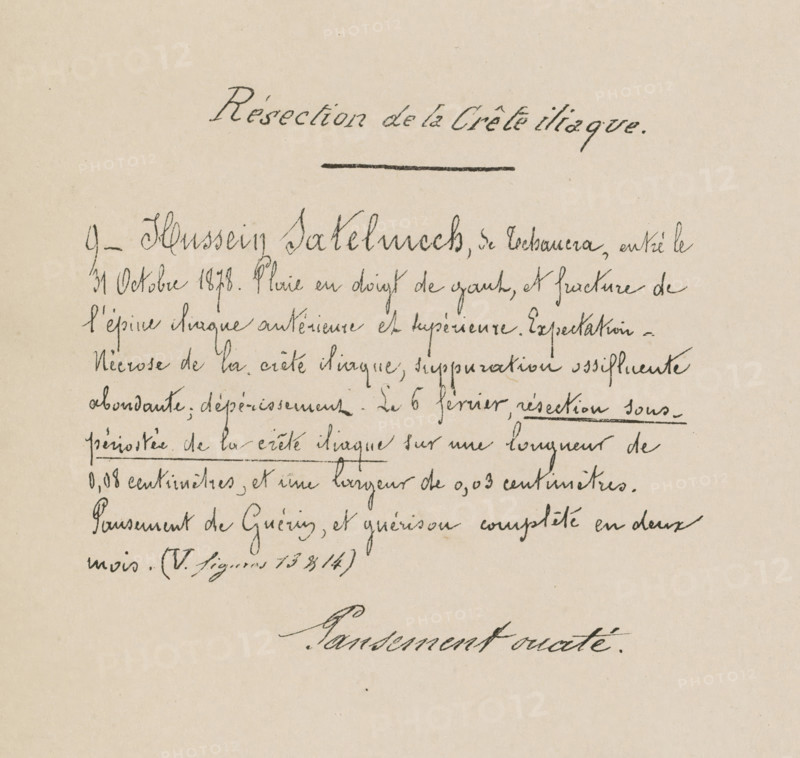 Résection de la Crête iliaque.
9 – Hussein Satelmech, de Tchauera, entré le
31 Octobre 1878. Plaie en doigt de gant, et fracture de
l'épine iliaque antérieure et supérieure. Expectation –
Nécrose de la crête iliaque, suppuration ossifluente
abondante; dépérissement. Le 6 février, résection sous-
périostée de la crête iliaque sur une longueur de
0,08 centimètres, et une largeur de 0,03 centimètres.
Pansement de Guérin, et guérison complète en deux
mois. (V. figures 13 & 14)
Pansement ouaté.
PHOTO12